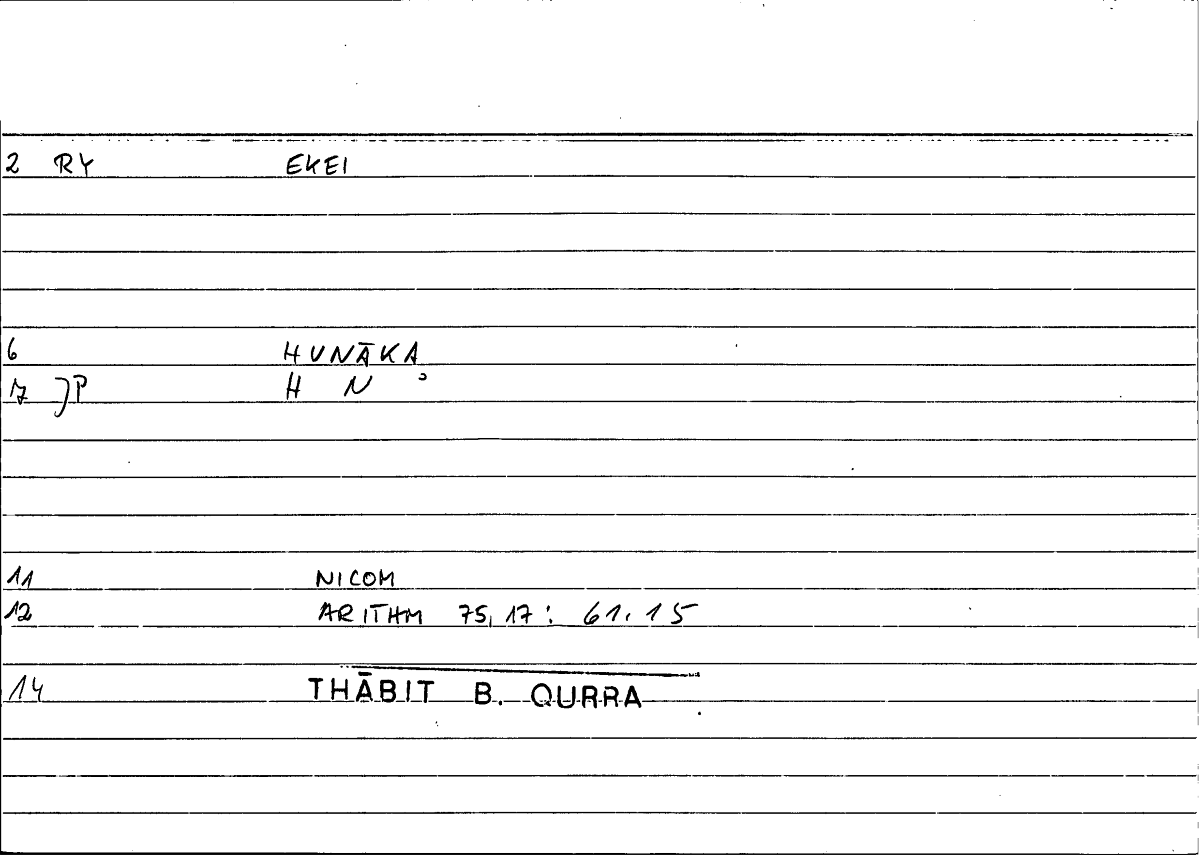 2 RY EKEI
6 HUNĀKA
7 JP H N
11 NICOM
12 ARITHM 75,17: 61.15
14 THĀBIT B. QURRA